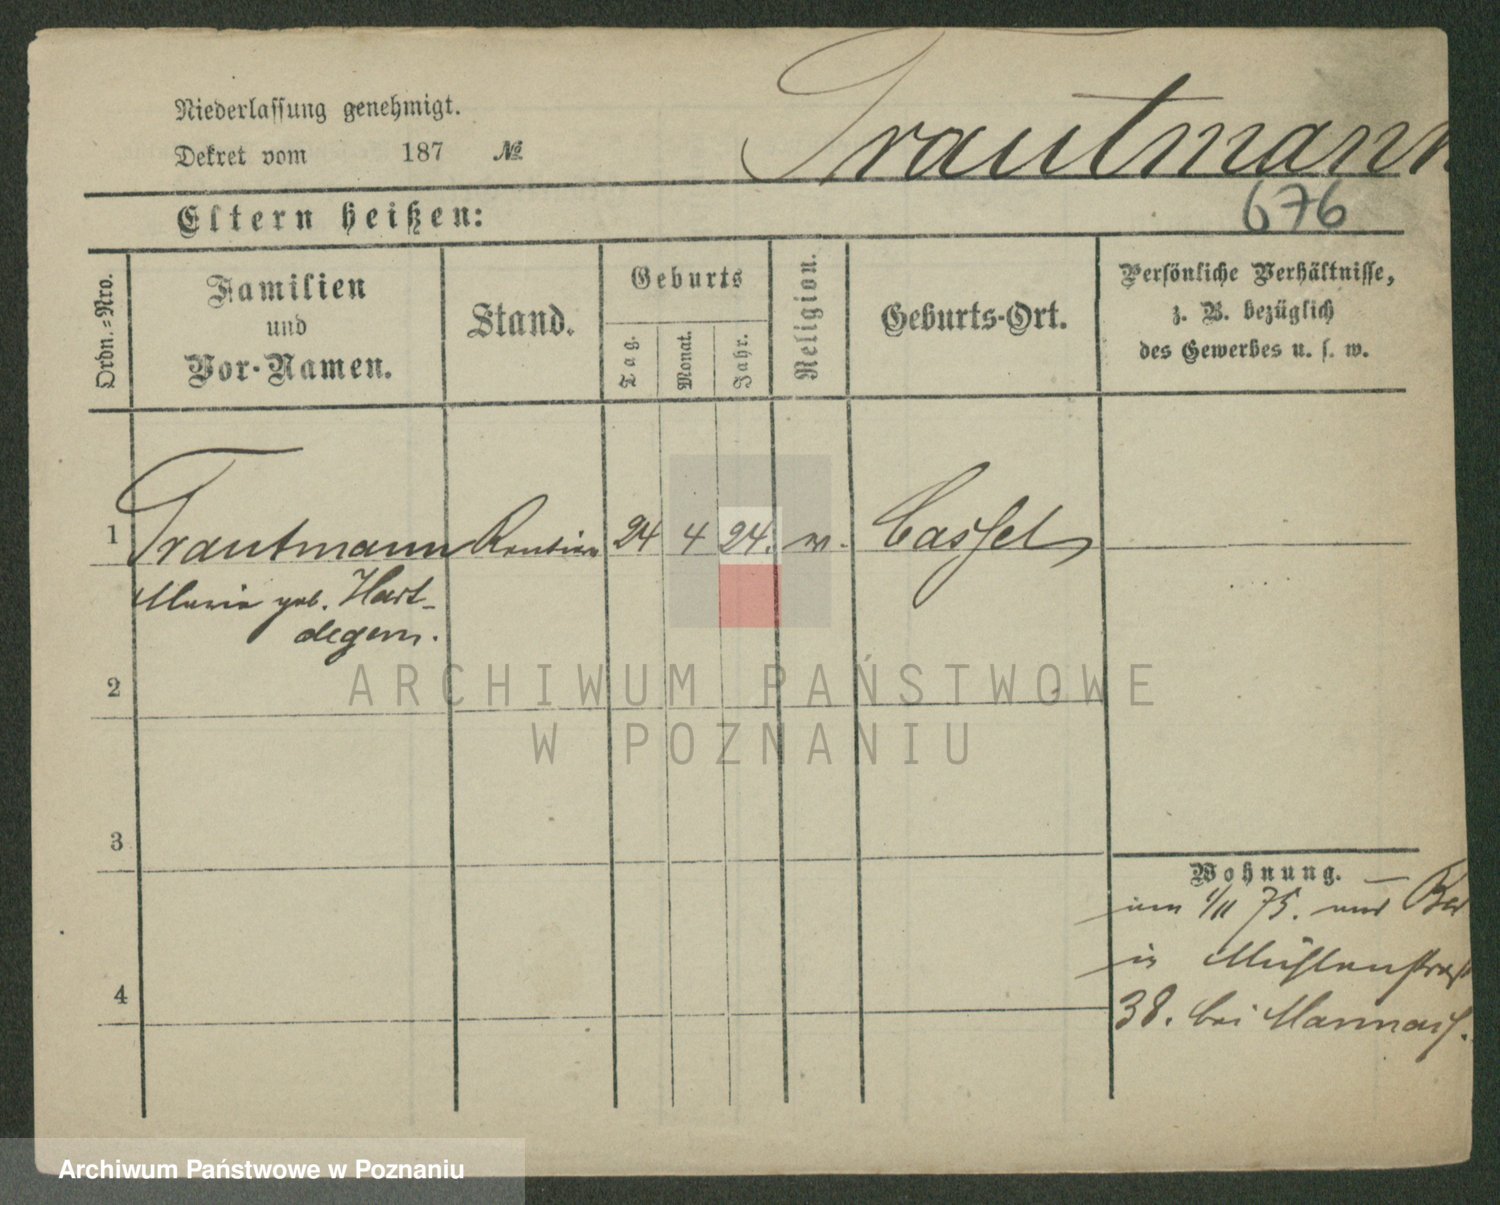 Niederlassung genehmigt.
Dekret vom 187 №
Trautmann
676
Eltern heißen:
Ordn.-Nro.
Familien
und
Vor-Namen.
Stand.
Geburts
Tag.
Monat.
Jahr.
Religion.
Geburts-Ort.
Persönliche Verhältnisse,
z. B. bezüglich
des Gewerbes u. s. w.
1 Trautmann Rentier 24 4 24. Cassel
Maria geb. Hart-
degen.
2
3
4
Wohnung.
1/11 75.
in Mühlenstraß
38. bei
ARCHIWUM PAŃSTWOWE
W POZNANIU
Archiwum Państwowe w Poznaniu